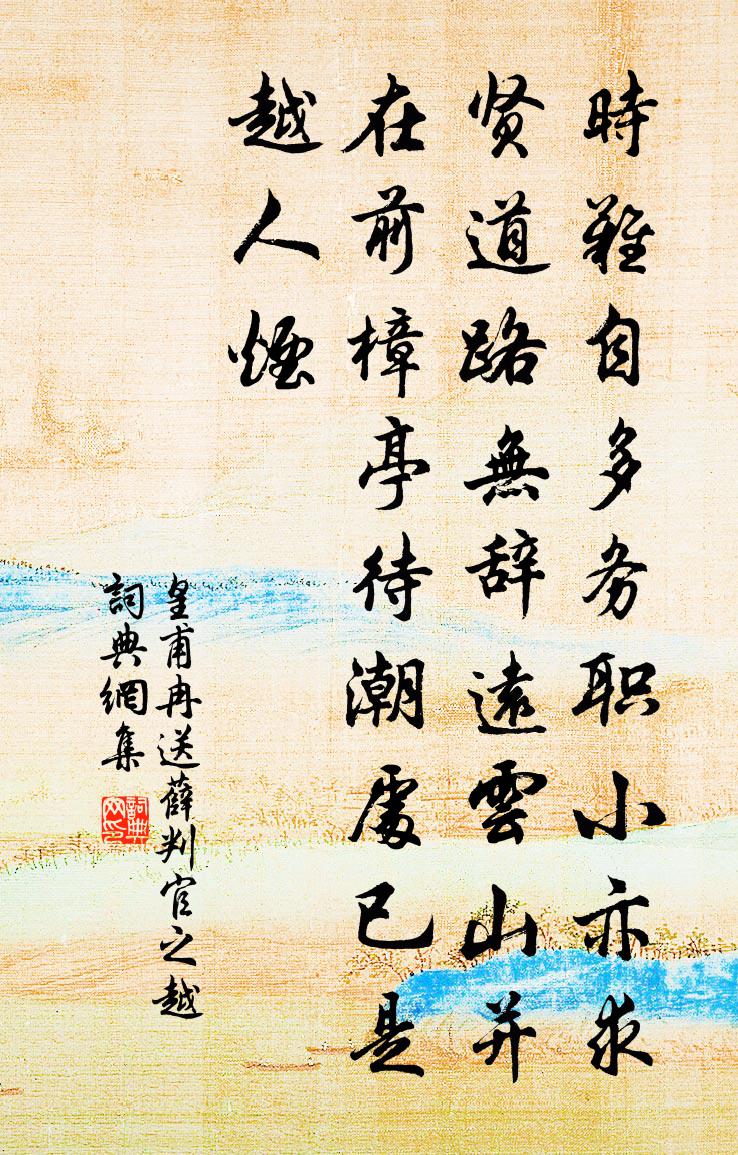 時難自多务职小亦求
贤道路無辞遠雲山并
在前樟亭待潮處已是
越人煙
皇甫冉送薛判官之越
詞典網集
詞典网印